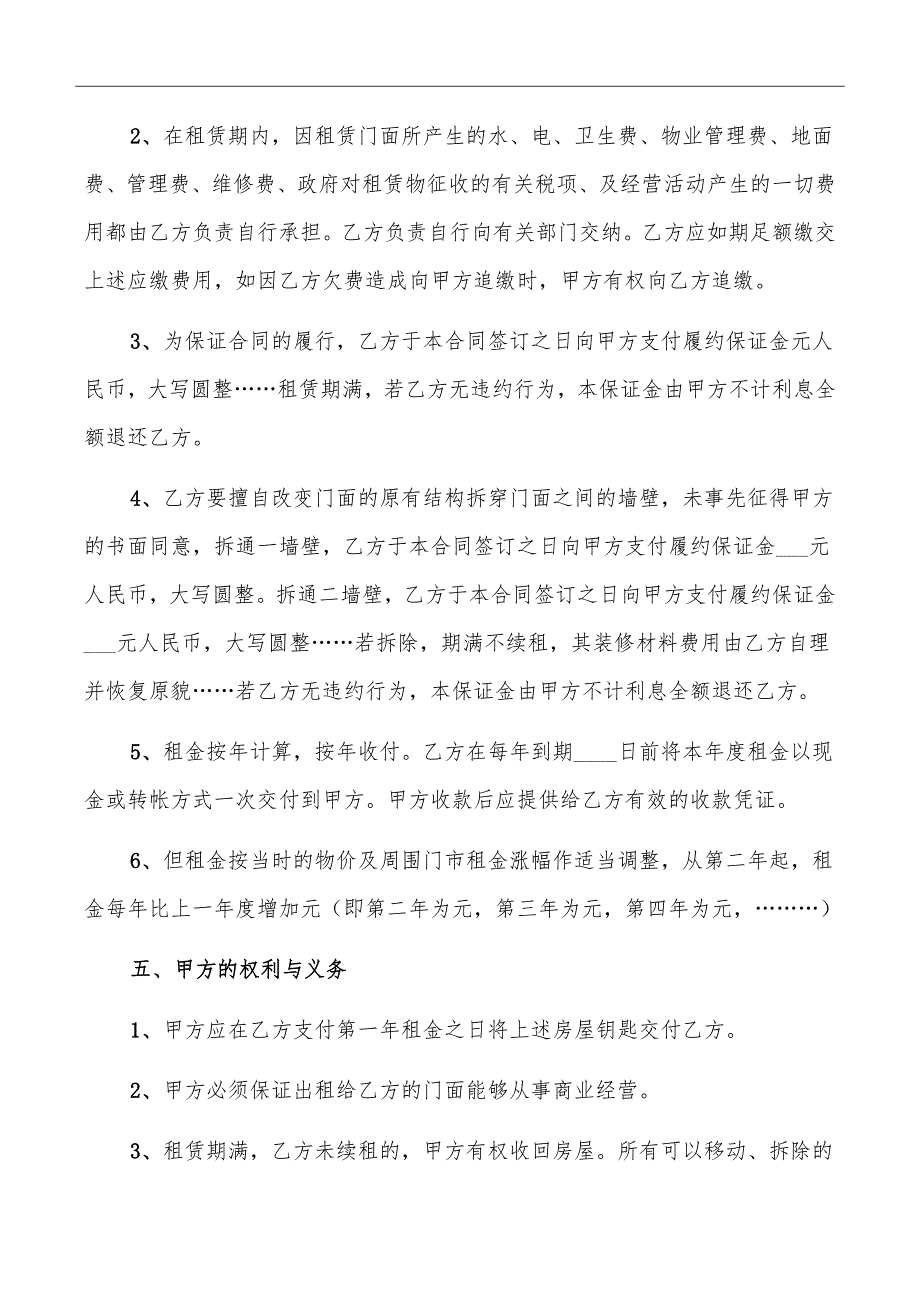 2、在租赁期内，因租赁门面所产生的水、电、卫生费、物业管理费、地面
费、管理费、维修费、政府对租赁物征收的有关税项、及经营活动产生的一切费
用都由乙方负责自行承担。乙方负责自行向有关部门交纳。乙方应如期足额缴交
上述应缴费用，如因乙方欠费造成向甲方追缴时，甲方有权向乙方追缴。
3、为保证合同的履行，乙方于本合同签订之日向甲方支付履约保证金元人
民币，大写圆整……租赁期满，若乙方无违约行为，本保证金由甲方不计利息全
额退还乙方。
4、乙方要擅自改变门面的原有结构拆穿门面之间的墙壁，未事先征得甲方
的书面同意，拆通一墙壁，乙方于本合同签订之日向甲方支付履约保证金___元
人民币，大写圆整。拆通二墙壁，乙方于本合同签订之日向甲方支付履约保证金
___元人民币，大写圆整……若拆除，期满不续租，其装修材料费用由乙方自理
并恢复原貌……若乙方无违约行为，本保证金由甲方不计利息全额退还乙方。
5、租金按年计算，按年收付。乙方在每年到期____日前将本年度租金以现
金或转帐方式一次交付到甲方。甲方收款后应提供给乙方有效的收款凭证。
6、但租金按当时的物价及周围门市租金涨幅作适当调整，从第二年起，租
金每年比上一年度增加元（即第二年为元，第三年为元，第四年为元，………）
五、甲方的权利与义务
1、甲方应在乙方支付第一年租金之日将上述房屋钥匙交付乙方。
2、甲方必须保证出租给乙方的门面能够从事商业经营。
3、租赁期满，乙方未续租的，甲方有权收回房屋。所有可以移动、拆除的